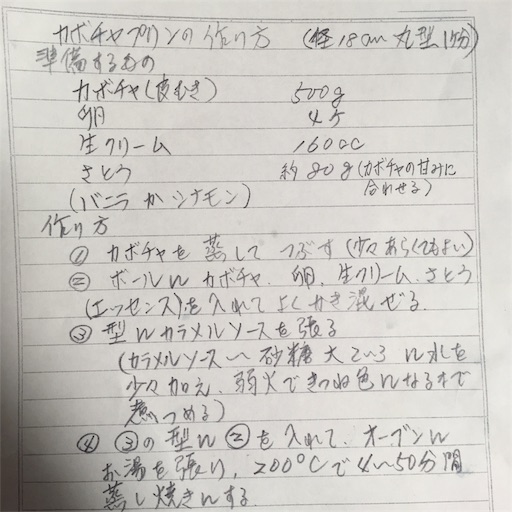 カボチャプリンの作り方 (径18cm丸型1ケ分)
準備するもの
カボチャ(皮むき) 500g
卵 4ケ
生クリーム 160cc
さとう 約80g(カボチャの甘みに
合わせる)
(バニラかシナモン)
作り方
① カボチャを蒸してつぶす(少々あらくてもよい)
② ボールにカボチャ、卵、生クリーム、さとう
(エッセンス)を入れてよくかき混ぜる。
③ 型にカラメルソースを張る
(カラメルソース〜砂糖大2〜3に水を
少々加え、弱火できつね色になるまで
煮つめる)
④ ③の型に②を入れて、オーブンに
お湯を張り、200℃で4〜50分間
蒸し焼きにする。